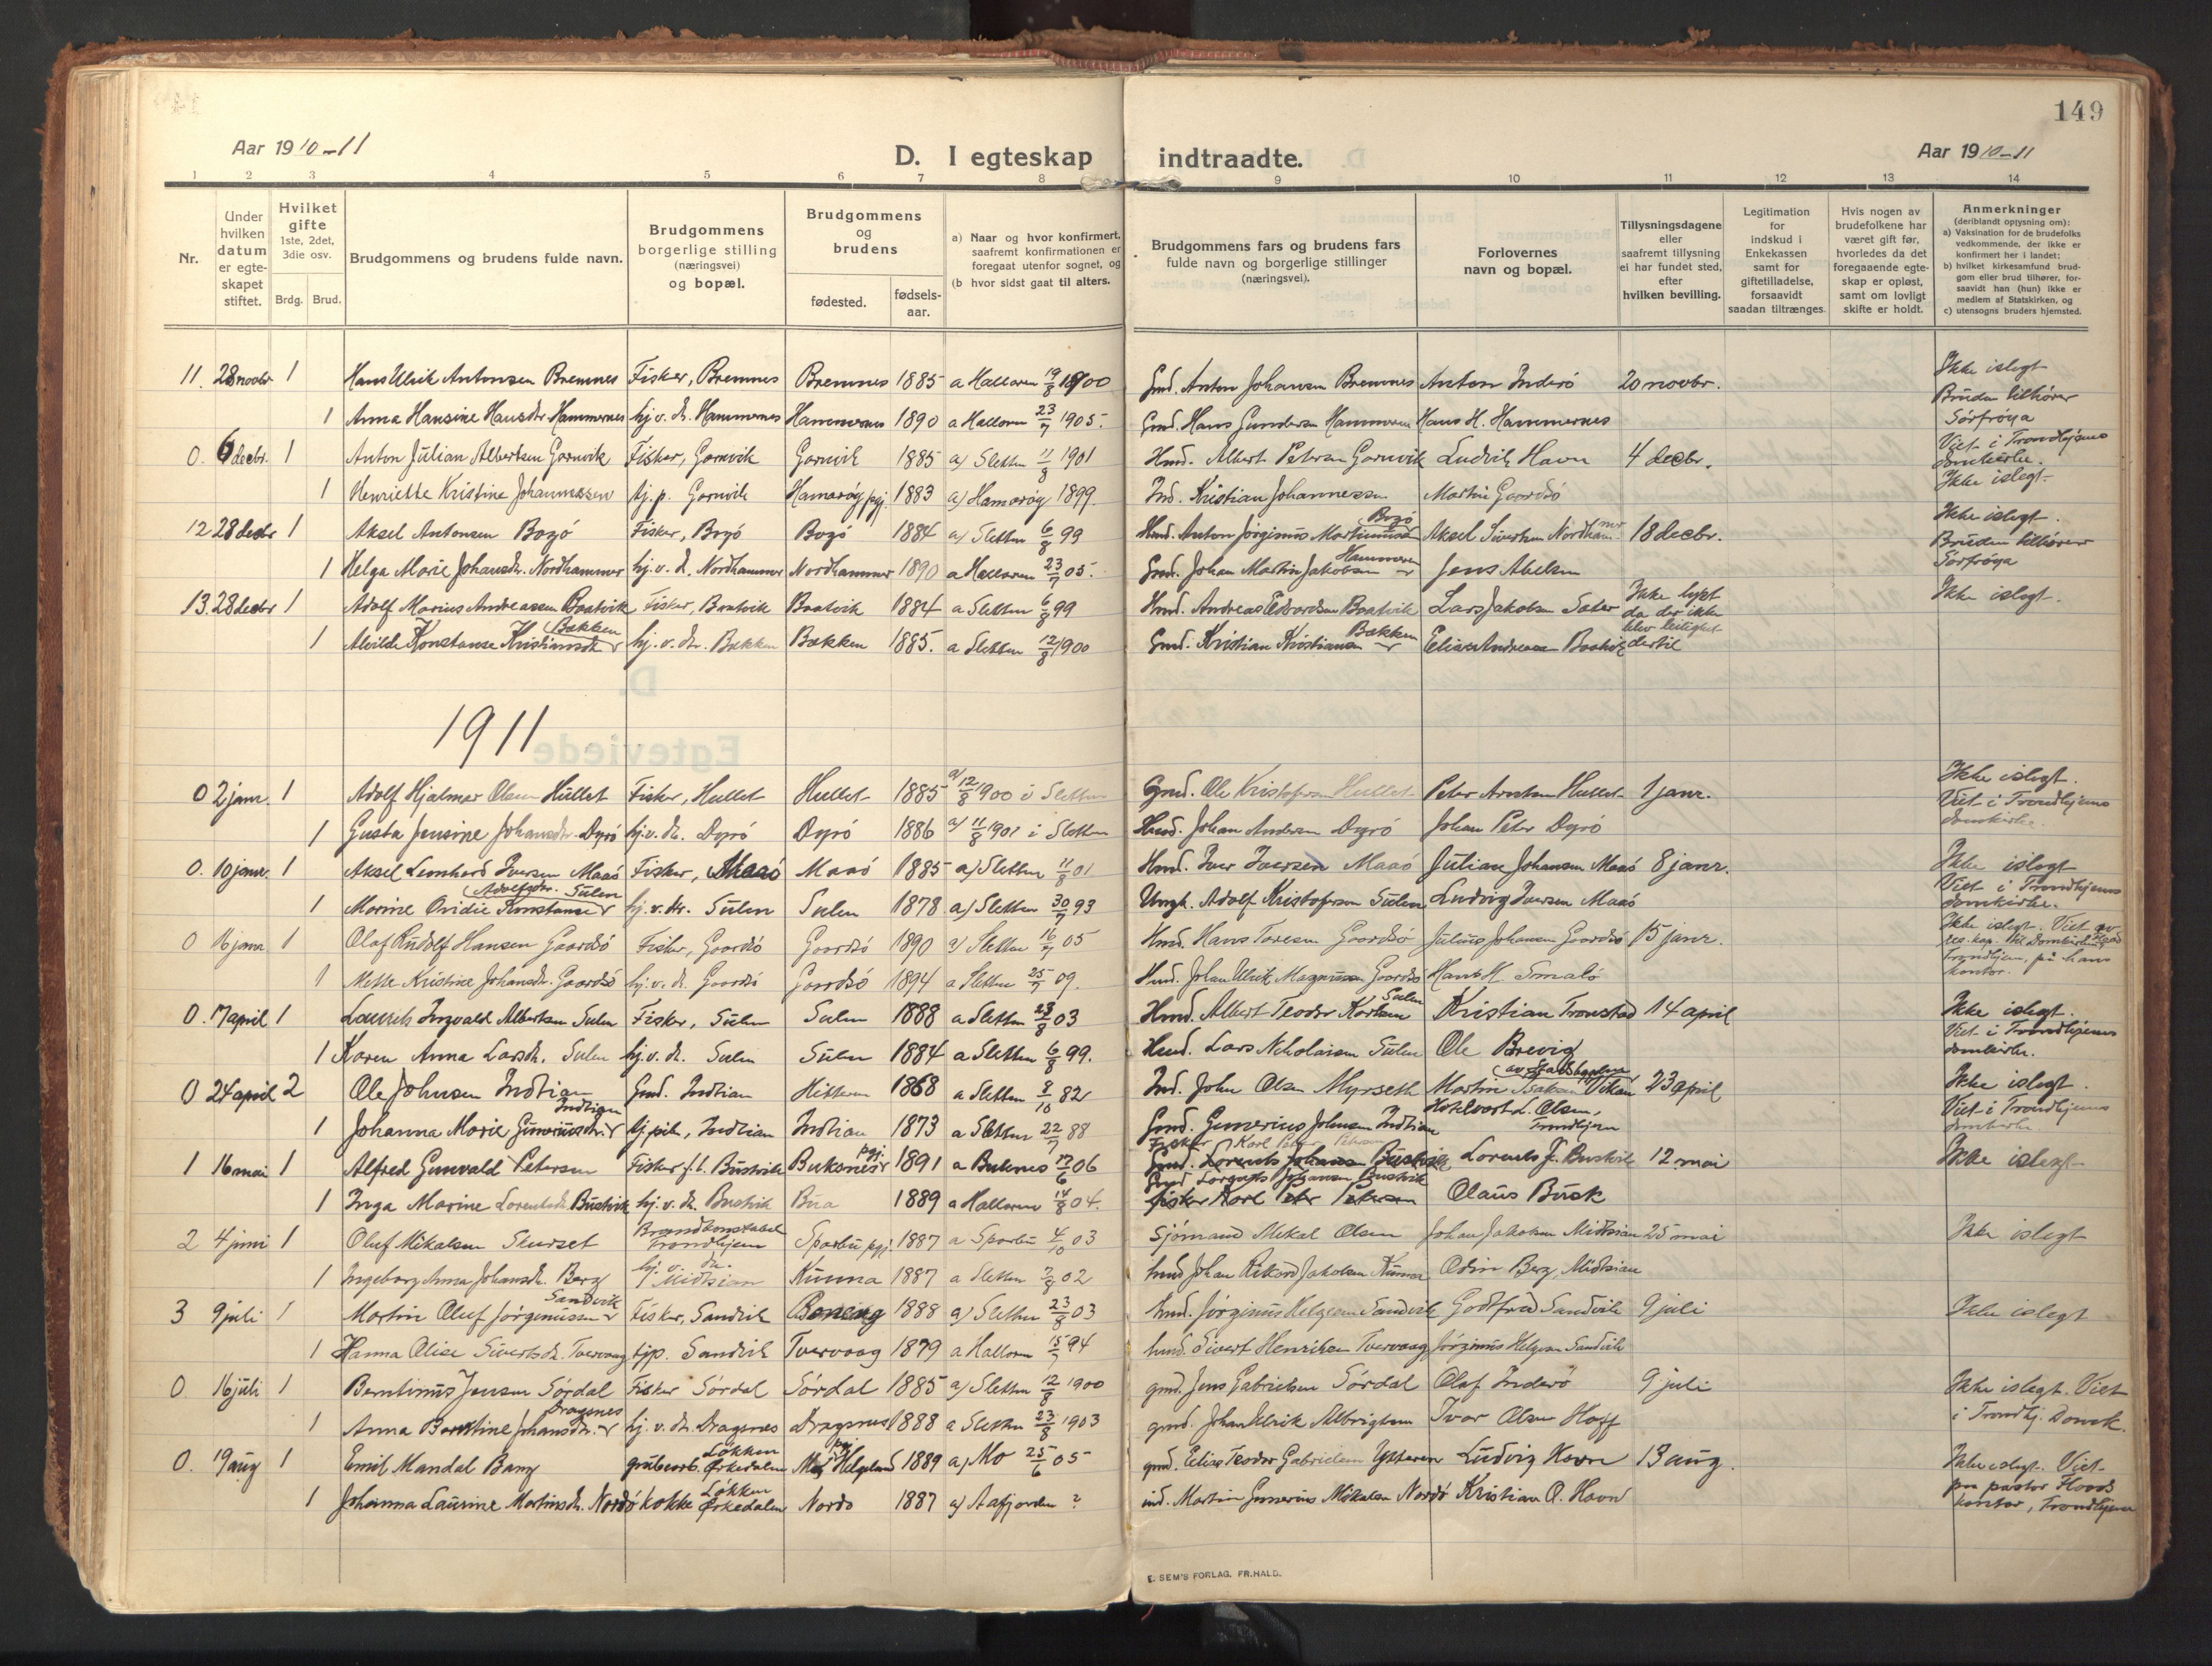 149
Aar 1910-11
D. I egteskap indtraadte.
Aar 1910-11
1 2 3 4 5 6 7 8 9 10 11 12 13 14
Nr.
Under hvilken datum er egteskapet stiftet.
Hvilket gifte 1ste, 2det, 3die osv.
Brdg. Brud.
Brudgommens og brudens fulde navn.
Brudgommens borgerlige stilling (næringsvei) og bopæl.
Brudgommens og brudens
fødested.
fødsels-aar.
a) Naar og hvor konfirmert, saafremt konfirmationen er foregaat utenfor sognet, og
(b hvor sidst gaat til alters.
Brudgommens fars og brudens fars fulde navn og borgerlige stillinger (næringsvei).
Forlovernes navn og bopæl.
Tillysningsdagene eller saafremt tillysning ei har fundet sted, efter hvilken bevilling.
Legitimation for indskud i Enkekassen samt for giftetilladelse, forsaavidt saadan tiltrænges.
Hvis nogen av brudefolkene har været gift før, hvorledes da det foregaaende egteskap er opløst, samt om lovligt skifte er holdt.
Anmerkninger
(deriblandt oplysning om):
a) Vaksination for de brudefolks vedkommende, der ikke er konfirmert her i landet;
b) hvilket kirkesamfund brudgom eller brud tilhører, forsaavidt han (hun) ikke er medlem af Statskirken, og
c) utensogns bruders hjemsted.
11. 28 novbr 1 Hans Ulrik Antonsen Bremnes Fisker, Bremnes Bremnes 1885 a Hallaren 19/8 1900 Gmd. Anton Johansen Bremnes Anton Inderö 20 novbr. Ikke islegt
1 Anna Hansine Hansdr. Hammernes hj. v. dr. Hammernes Hammernes 1890 a Hallaren 23/7 1905. Gmd. Hans Gundersen Hammernes Hans H. Hammernes Bruden tilhører Sörfröya
0. 6 decbr. 1 Anton Julian Albertsen Gornvik Fisker, Gornvik Gornvik 1885 a) Sletten 11/8 1901 Hmd. Albert Petersen Gornvik Ludvik Havn 4 decbr. Viet i Trondhjems domkirke.
1 Henriette Kristine Johannessen tj. p. Gornvik Hamaröy pgj. 1883 a) Hamaröy 1899. Ind. Kristian Johannessen Martin Gaardsö Ikke islegt
12 28 decbr 1 Aksel Antonsen Bogö Fisker, Bogö Bogö 1884 a) Sletten 6/8 99 Hmd. Anton Jörginus Martinussen Bogö Aksel Sivertsen Nordhammer 18 decbr. Ikke islegt.
1 Helga Marie Johansdr. Nordhammer hj. v. d. Nordhammer Nordhammer 1890 a Hallaren 23/7 05. Gmd. Johan Martin Jakobsen Hammeren Jens Abelsen Bruden tilhører Sörfröya
13. 28 decbr 1 Adolf Marius Andreassen Baatvik Fisker, Baatvik Baatvik 1884 a Sletten 6/8 99 Hmd. Andreas Edvardsen Baatvik Lars Jakobsen Sater Ikke lyst da der ikke blev leilighet dertil Ikke islegt.
1 Alvilde Konstanse Kristiansdr Bakken hj. v. dr. Bakken Bakken 1885. a Sletten 12/8 1900 Gmd. Kristian Kristiansen Bakken Elias Andreassen Baatvik
1911
0 2 janr. 1 Adolf Hjalmar Olsen Hullet Fisker, Hullet Hullet 1885 a/ 12/8 1900 i Sletten Gmd. Ole Kristofersen Hullet Peter Arntsen Hullet 1 janr. Ikke islegt. Viet i Trondhjems domkirke.
1 Gusta Jensine Johansdr. Dyrö hj. v. dr. Dyrö Dyrö 1886 a/ 11/8 1901 i Sletten Hmd. Johan Andersen Dyrö Johan Peter Dyrö
0. 10 janr. 1 Aksel Leonhard Iversen Maaö Fisker, Maaö Maaö 1885 a) Sletten 11/8 01 Hmd. Iver Iversen Maaö Julian Johansen Maaö 8 janr. Ikke islegt
1 Marine Ovidie Konstanse Adolfsdr. Sulen hj. v. dr. Sulen Sulen 1878 a) Sletten 30/7 93 Ungk. Adolf Kristofersen Sulen Ludvig Iversen Maaö Viet i Trondhjems domkirke.
0 16 janr 1 Olaf Rudolf Hansen Gaardsö Fisker, Gaardsö Gaardsö 1890 a) Sletten 16/7 05 Hmd. Hans Toresen Gaardsö Julius Johansen Gaardsö 15 janr. Ikke islegt. Viet av res. kap. til Domkirken Trondhjem, på hans kontor.
1 Mette Kristine Johansdr. Gaardsö hj. v. d. Gaardsö Gaardsö 1894 a Sletten 25/7 09. Hmd. Johan Ulrik Magnussen Gaardsö Hans M Smalö
0. 17 april 1 Laurits Ingvald Albertsen Sulen Fisker, Sulen Sulen 1888 a Sletten 23/8 03 Hmd. Albert Teodor Karlsen Sulen Kristian Tronstad 14 april Ikke islegt.
1 Karen Anna Larsdr. Sulen hj. v. dr. Sulen Sulen 1884 a Sletten 6/8 99. Hmd. Lars Nikolaisen Sulen Ole Brevig Viet i Trondhjems domkirke.
0 24 april 2 Ole Johnsen Indtian Gmd. Indtian Hitteren 1868 a Sletten 8/10 82 Ind. John Olsen Myrseth Martin Isaksen Vikan 23 april Ikke islegt.
1 Johanna Marie Guneriusdr. Indtian tj pik, Indtian Indtian 1873 a Sletten 22/7 88 Gmd. Gunerius Johnsen Indtian Hotelvert L. Olsen, Trondhjem Viet i Trondhjems domkirke
1 16 mai 1 Alfred Gunvald Petersen Fisker f. t. Bustvik Buksnes pgj. 1891 a Buksnes 17/6 06 Fisker Karl Peter Petersen Gmd. Lorents Johans Bustvik Lorents J. Bustvik 12 mai Ikke islegt
1 Inga Marine Lorentsdr. Bustvik hj. v. dr. Bustvik Bua 1889 a Hallaren 14/8 04. Gmd Lorents Johansen Bustvik fisker Karl Peter Petersen Olaus Busk
2 4 juni 1 Oluf Mikalsen Skurset Brandkonstabel Trondhjem Sparbu pgj. 1887 a Sparbu 4/10 03 Sjömand Mikal Olsen Johan Jakobsen Midtsian 25 mai Ikke islegt
1 Ingeborg Anna Johansdr. Berg hj. v. dr. Midtsian Kunna 1887 a Sletten 7/8 02 hmd Johan Rikard Jakobsen Kunna Odin Berg Midtsian
3 9 juli 1 Martin Oluf Jörginussen Sandvik Fisker, Sandvik 1888 a) Sletten 23/8 03 hmd. Jörginus Helgesen Sandvik Godtfred Sandvik 9 juli Ikke islegt
1 Hanna Elise Sivertsdr. Tvervaag tjp. Sandvik Tvervaag 1879 a Hallaren 15/7 94 hmd. Sivert Henriksen Tvervaag Jörginus Helgesen Sandvik
0. 16 juli 1 Berntinus Jensen Sördal Fisker Sördal Sördal 1885 a) Sletten 12/8 1900 gmd. Jens Gabrielsen Sördal Olaf Inderö 9 juli Ikke islegt. Viet
1 Anna Berntine Johansdr. Dragsnes hj. v. dr. Dragsnes Dragsnes 1888 a Sletten 23/8 1903 gmd. Johan Ulrik Albrigtsen Ivar Olsen Hoff i Trondhj. Domk.
0. 19 aug 1 Emil Mandal Bang grubearb. Løkken Ørkedalen Mo pgj. Helgeland 1889 a) Mo 25/6 05 gmd. Elias Teodor Gabrielsen Ytteren Ludvig Havn 13 aug. Ikke islegt. Viet
1 Johanna Laurine Martinsdr. Nordö kokke Løkken Ørkedalen Nordö 1887 a) Aafjorden ? ind. Martin Gunerius Mikalsen Nordö Kristian O. Havn paa pastor Hoods kontor, Trondhjem
E. SEM'S FORLAG. FR.HALD.